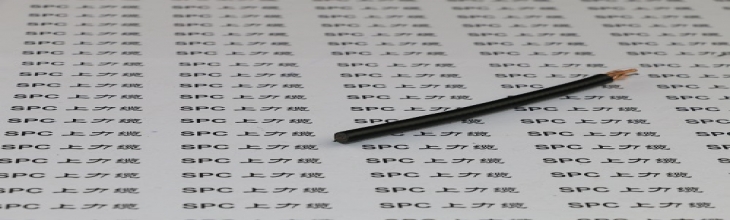 SPC 上力缆 SPC 上力缆 SPC 上力缆 SPC 上力缆 SPC 上力缆
SPC 上力缆 SPC 上力缆 SPC 上力缆 SPC 上力缆 SPC 上力缆
SPC 上力缆 SPC 上力缆 SPC 上力缆 SPC 上力缆 SPC 上力缆
SPC 上力缆 SPC 上力缆 SPC 上力缆 SPC 上力缆 SPC 上力缆
SPC 上力缆 SPC 上力缆 SPC 上力缆 SPC 上力缆 SPC 上力缆
SPC 上力缆 SPC 上力缆 SPC 上力缆 SPC 上力缆 SPC 上力缆
SPC 上力缆 SPC 上力缆 SPC 上力缆 SPC 上力缆 SPC 上力缆
SPC 上力缆 SPC 上力缆 SPC 上力缆 SPC 上力缆
SPC 上力缆 SPC 上力缆 SPC 上力缆 SPC 上力缆
SPC 上力缆 SPC 上力缆 SPC 上力缆 SPC 上力缆
SPC 上力缆 SPC 上力缆 SPC 上力缆 SPC 上力缆
SPC 上力缆 SPC 上力缆 SPC 上力缆 SPC 上力缆
SPC 上力缆 SPC 上力缆 SPC 上力缆 SPC 上力缆
SPC 上力缆 SPC 上力缆 SPC 上力缆 SPC 上力缆
SPC 上力缆 SPC 上力缆 SPC 上力缆 SPC 上力缆